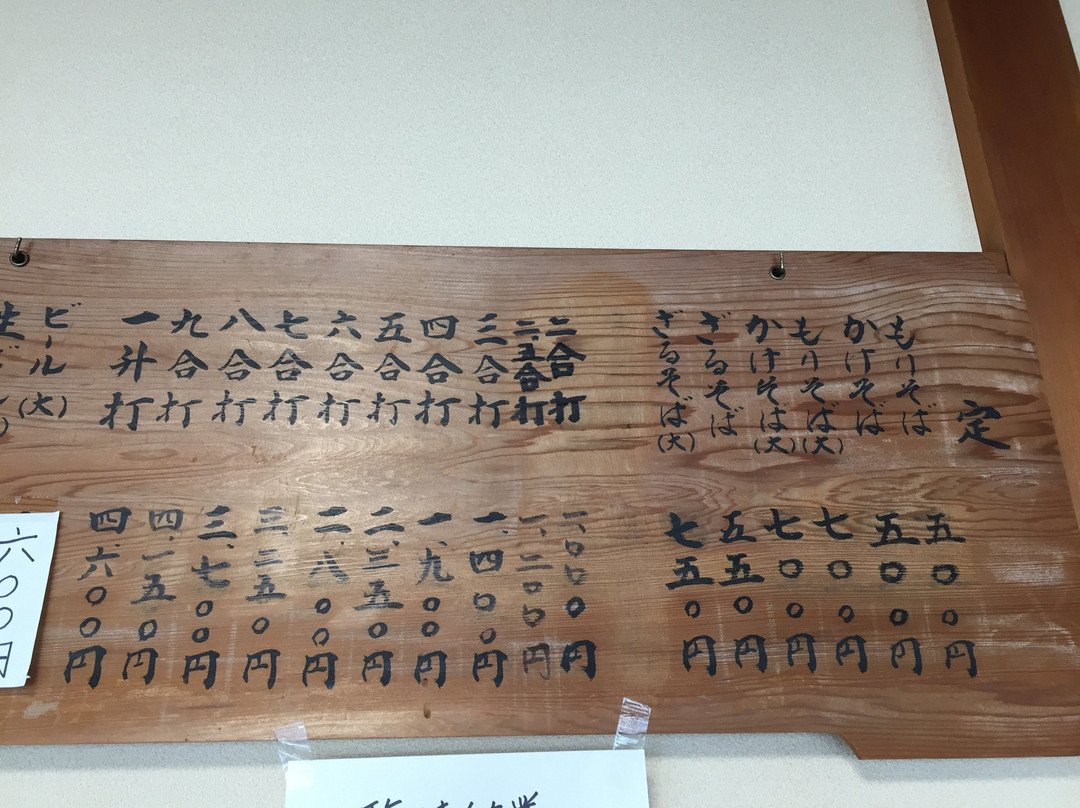 定
もりそば 五〇〇円
かけそば 五〇〇円
もりそば(大) 七〇〇円
かけそば(大) 七〇〇円
ざるそば 五五〇円
ざるそば(大) 七五〇円
二合打 一、〇〇〇円
二、五合打 一、二〇〇円
三合打 一、四〇〇円
四合打 一、九〇〇円
五合打 二、三五〇円
六合打 二、八〇〇円
七合打 三、二五〇円
八合打 三、七〇〇円
九合打 四、一五〇円
一斗打 四六〇〇円
ビール(大) 六〇〇円